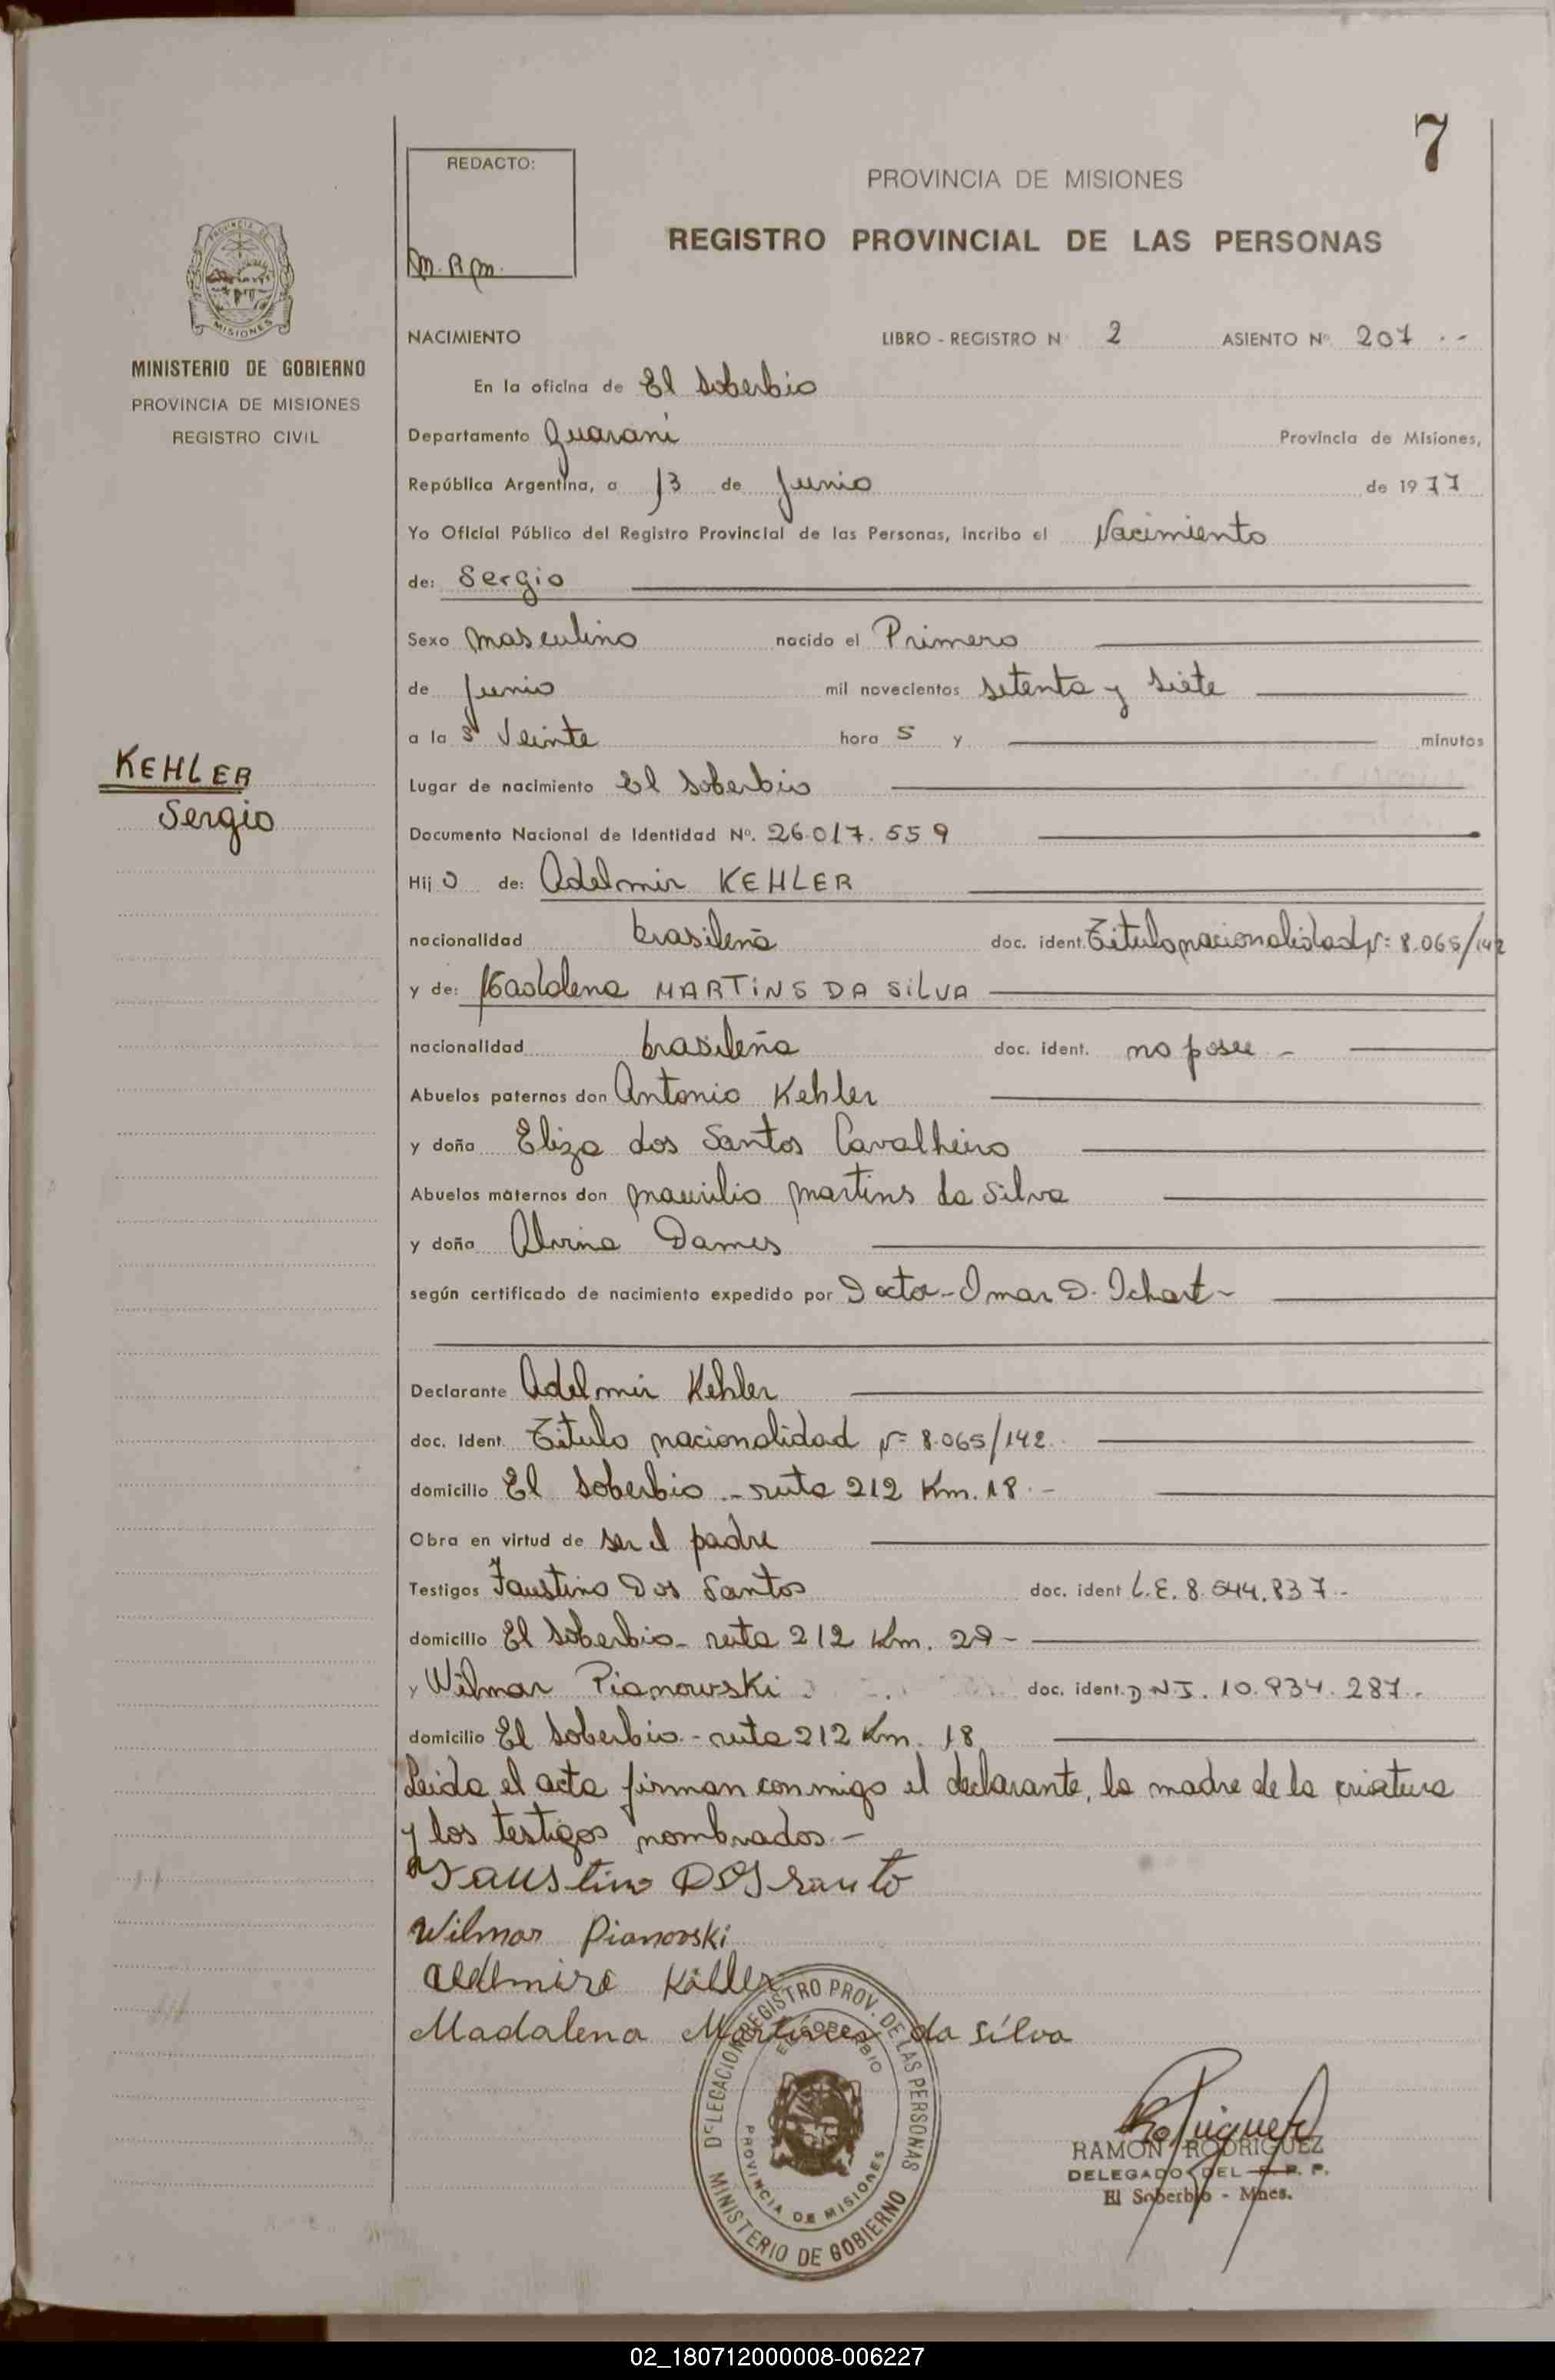 7
REDACTO:
M.R.M.
PROVINCIA DE MISIONES
REGISTRO PROVINCIAL DE LAS PERSONAS
MISIONES
MINISTERIO DE GOBIERNO
PROVINCIA DE MISIONES
REGISTRO CIVIL
KEHLER
Sergio
NACIMIENTO LIBRO - REGISTRO N° 2 ASIENTO N° 207 --
En la oficina de El Soberbio
Departamento Guaraní Provincia de Misiones,
República Argentina, a 13 de Junio de 1977
Yo Oficial Público del Registro Provincial de las Personas, incribo el Nacimiento
de: Sergio
Sexo Masculino nacido el Primero
de Junio mil novecientos setenta y siete
a la s Veinte hora s y minutos
Lugar de nacimiento El Soberbio
Documento Nacional de Identidad N°. 26.017.559
Hij o de: Adelmir KEHLER
nacionalidad brasileña doc. ident. Título nacionalidad N= 8.065/142
y de: Madalena MARTINS DA SILVA
nacionalidad brasileña doc. ident. no posee -
Abuelos paternos don Antonio Kehler
y doña Eliza dos Santos Cavalheiro
Abuelos maternos don Maurilio Martins da Silva
y doña Alvina Dames
según certificado de nacimiento expedido por Doctor - Omar D. Ichart -
Declarante Adelmir Kehler
doc. Ident. Título nacionalidad N= 8.065/142
domicilio El Soberbio - ruta 212 Km. 18. -
Obra en virtud de ser el padre
Testigos Faustino Dos Santos doc. ident L.E. 8.544.837 -
domicilio El Soberbio - ruta 212 Km. 29 -
y Wilmar Pianowski doc. ident. DNI. 10.934.287 -
domicilio El Soberbio - ruta 212 Km. 18
Leida el acta firman conmigo el declarante, la madre de la criatura
y los testigos nombrados -
Faustino DOS Santo
Wilmar Pianovski
Madalena da Silva
DELEGACION REGISTRO PROV. DE LAS PERSONAS
EL SOBERBIO
PROVINCIA DE MISIONES
MINISTERIO DE GOBIERNO
RAMON RODRIGUEZ
DELEGADO DEL R. P. P.
El Soberbio - Mnes.
02_180712000008-006227